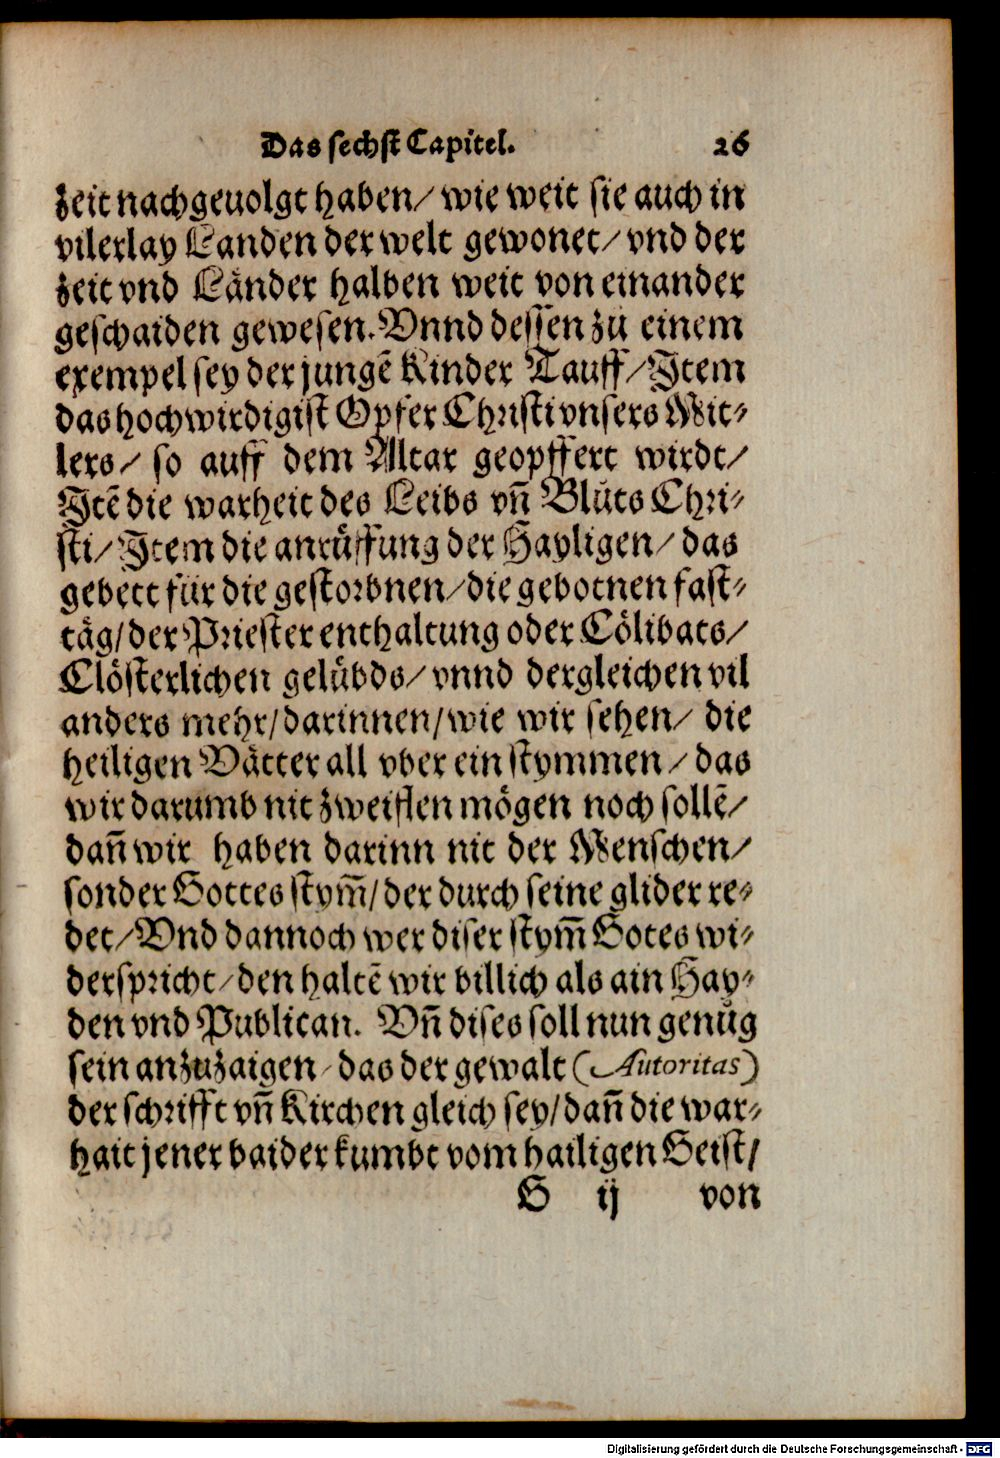 Das sechst Capitel. 26
zeit nachgeuolgt haben/ wie weit sie auch in
vilerlay Landen der welt gewonet/ vnd der
zeit vnd Länder halben weit von einander
geschaiden gewesen. Vnnd dessen zů einem
exempel sey der jungē Kinder Tauff/ Item
das hochwirdigist Opfer Christi vnsers Mit⸗
lers/ so auff dem Altar geopffert wirdt/
Itē die warheit des Leibs vñ Blůts Chri⸗
sti/ Item die anrůffung der Hayligen/ das
gebett für die gestorbnen/ die gebotnen fast⸗
täg/ der Priester enthaltung oder Cölibats/
Clösterlichen gelübds/ vnnd dergleichen vil
anders mehr/ darinnen/ wie wir sehen/ die
heiligen Vätter all vber ein stymmen/ das
wir darumb nit zweiflen mögen noch sollē/
dañ wir haben darinn nit der Menschen/
sonder Gottes stym̄/ der durch seine glider re⸗
det/ Vnd dannoch wer diser stym̄ Gotes wi⸗
derspricht/ den haltē wir billich als ain Hay⸗
den vnd Publican. Vñ dises soll nun genůg
sein anzuzaigen/ das der gewalt (Autoritas)
der schrifft vñ Kirchen gleich sey/ dañ die war⸗
hait jener baider kumbt vom hailigen Geist/
G ij von
Digitalisierung gefördert durch die Deutsche Forschungsgemeinschaft - DFG